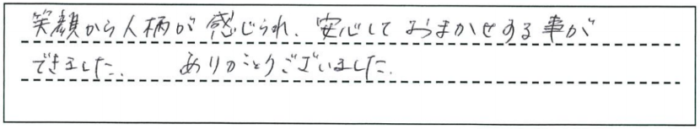 笑顔から人柄が感じられ、安心しておまかせする事が
できました。 ありがとうございました。